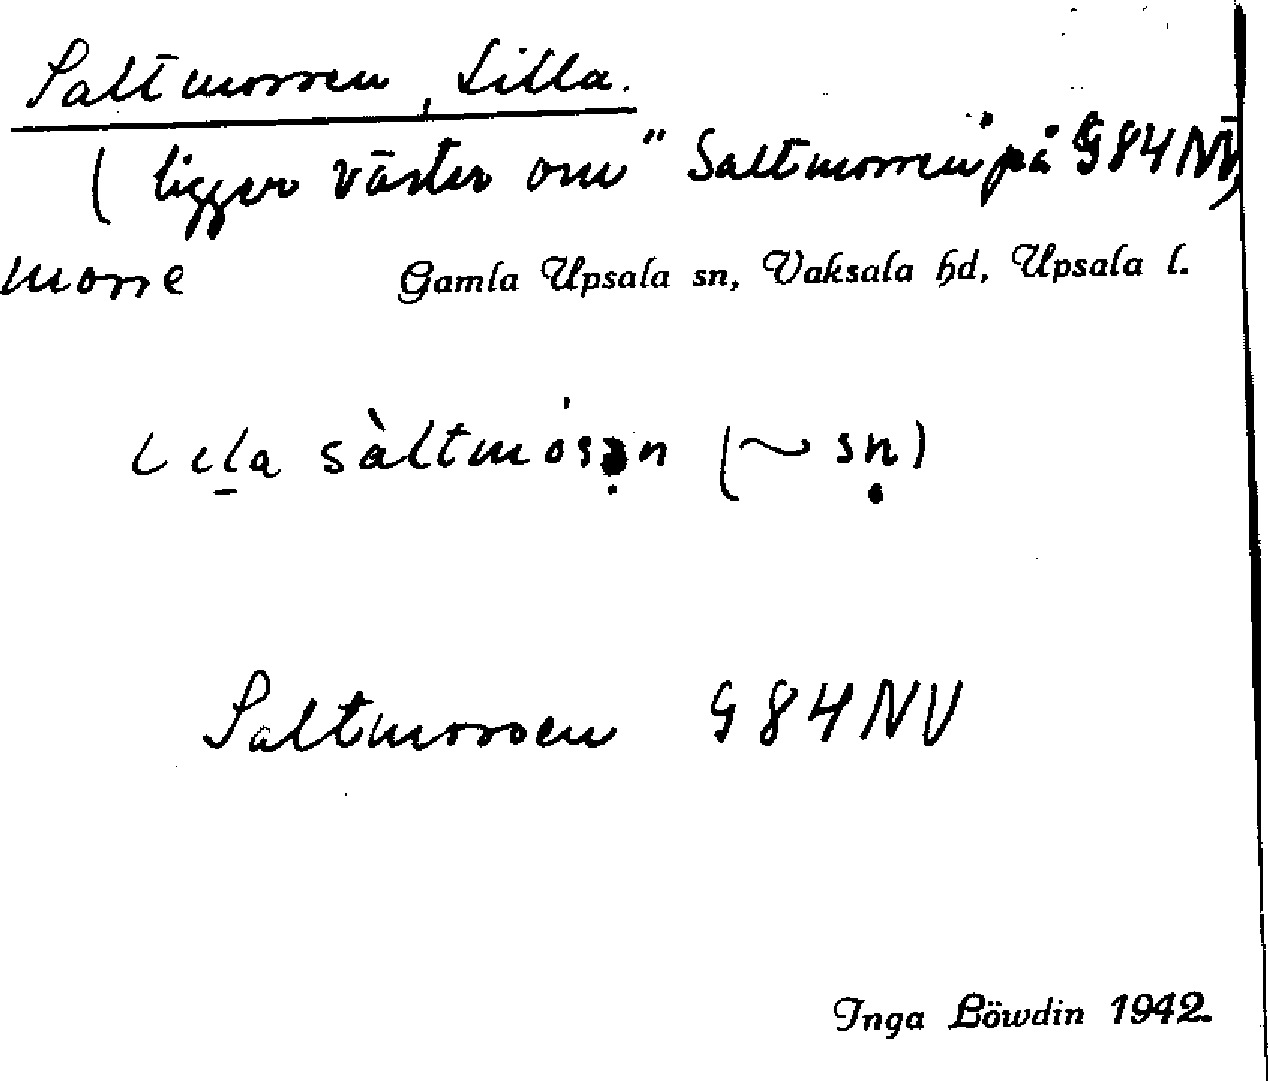 Saltmossen, Lilla.
(ligger väster om "Saltmossen" på G84NV)
mosse Gamla Upsala sn, Vaksala hd, Upsala l.
sàltmósən (~ sṇ)
Saltmossen G84NV
Inga Löwdin 1942.